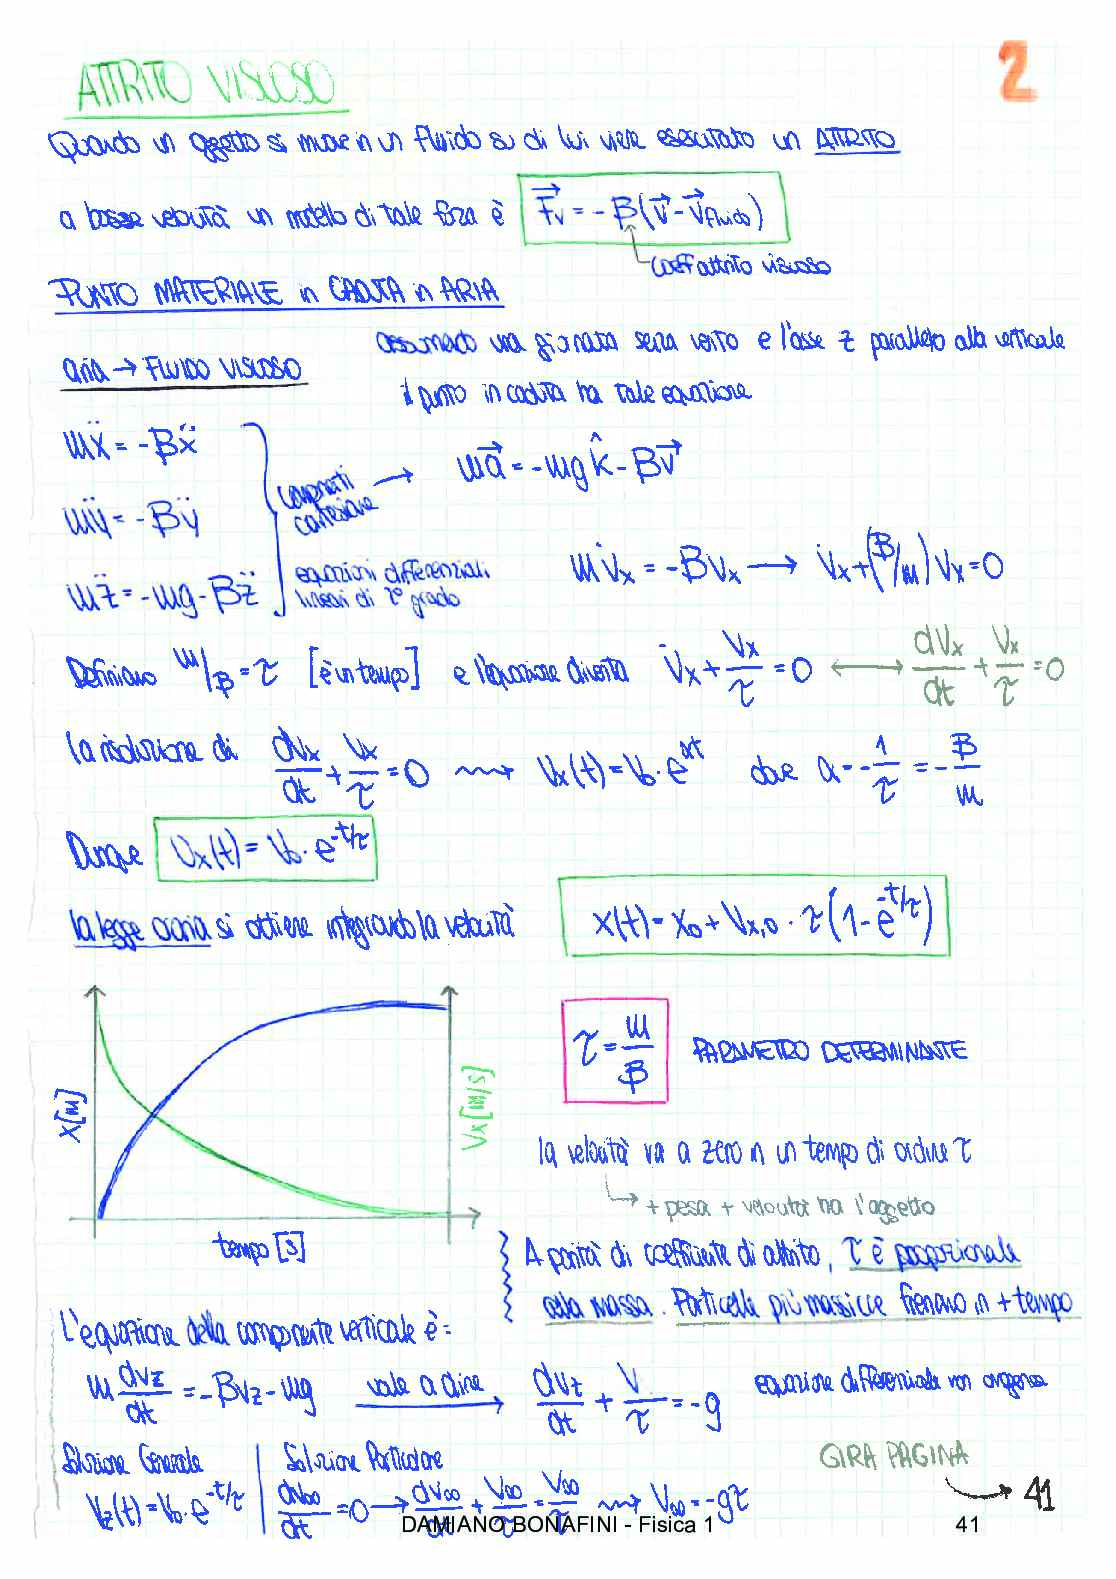 ATTRITO VISCOSO
2
Quando un oggetto si muove in un fluido su di lui viene esercitato un ATTRITO
a basse velocità un modello di tale forza è F⃗v = -β(v⃗ - v⃗fluido)
coeff attrito viscoso
PUNTO MATERIALE in CADUTA in ARIA
assumendo una giornata senza vento e l'asse z parallelo alla verticale
aria → FLUIDO VISCOSO
il punto in caduta ha tale equazione
mẍ = -βẍ
componenti cartesiane → ma⃗ = -mg k̂ - βv⃗
mÿ = -βÿ
mz̈ = -mg - βz̈
equazioni differenziali
lineari di 2° grado
mv̇x = -βvx → v̇x + (β/m)vx = 0
Definiamo m/β = τ [è un tempo] e l'equazione diventa v̇x + vx/τ = 0 ⟷ dvx/dt + vx/τ = 0
la risoluzione di dvx/dt + vx/τ = 0 ⇝ vx(t) = v₀·e^αt dove α = -1/τ = -β/m
Dunque vx(t) = v₀·e^-t/τ
la legge oraria si ottiene integrando la velocità x(t) = x₀ + vx,₀·τ(1-e^-t/τ)
x[m]
vx[m/s]
tempo [s]
τ = m/β PARAMETRO DETERMINANTE
la velocità va a zero in un tempo di ordine τ
+ pesa + velocità ha l'oggetto
A parità di coefficiente di attrito, τ è proporzionale
alla massa. Particelle più massicce frenano in + tempo
L'equazione della componente verticale è:
m dvz/dt = -βvz - mg vale a dire → dvz/dt + v/τ = -g equazione differenziale non omogenea
Soluzione Generale
vz(t) = v₀·e^-t/τ
Soluzione Particolare
dv∞/dt = 0 → dv∞/dt + v∞/τ = v∞/τ ⇝ v∞ = -gτ
GIRA PAGINA
→ 41
DAMIANO BONAFINI - Fisica 1
41